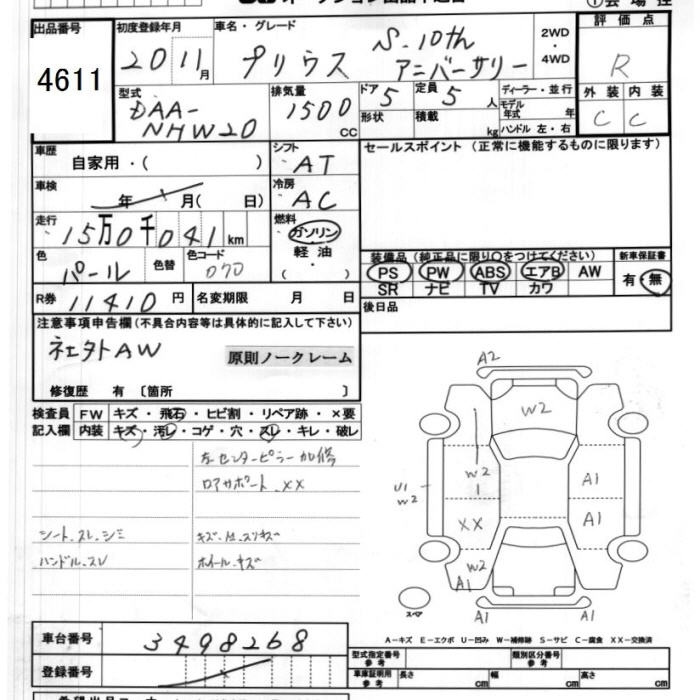 出品番号
4611
初度登録年月
20 11月
車名・グレード
プリウス S-10th アニバーサリー
2WD
・
4WD
評価点
R
外装 内装
C C
型式
DAA-
NHW20
排気量
1500
CC
ドア 5
定員 5 人
形状
積載 kg
ディーラー・並行
モデル年式 年
ハンドル 左・右
車歴
自家用・( )
シフト
AT
セールスポイント (正常に機能するものに限ります)
車検
年 月( 日)
冷房
AC
走行
15万0千041km
燃料
ガソリン
軽油
( ・ )
色
パール
色替
色コード
070
装備品(純正品に限り○をつけてください)
新車保証書
PS PW ABS エアB AW
SR ナビ TV カワ
有・無
R券 11410円
名変期限 月 日
後日品
注意事項申告欄(不具合内容等は具体的に記入して下さい)
社外AW
原則ノークレーム
修復歴 有〔箇所 〕
検査員
記入欄
FW キズ・飛石・ヒビ割・リペア跡・×要
内装 キズ・汚レ・コゲ・穴・スレ・キレ・破レ
左センターピラー加修
ロアサポート XX
シート、スレ、シミ
ハンドル、スレ
ホイールキズ
A2
W2
W2
U1
W2
A1
XX
A1
W2
A1
A1
A1
スペア
A-キズ E-エクボ U-凹み W-補修跡 S-サビ C-腐食 XX-交換済
車台番号
3498268
登録番号
型式指定番号
参考
類別区分番号
参考
車庫証明用
参考
長さ cm 幅 cm 高さ cm